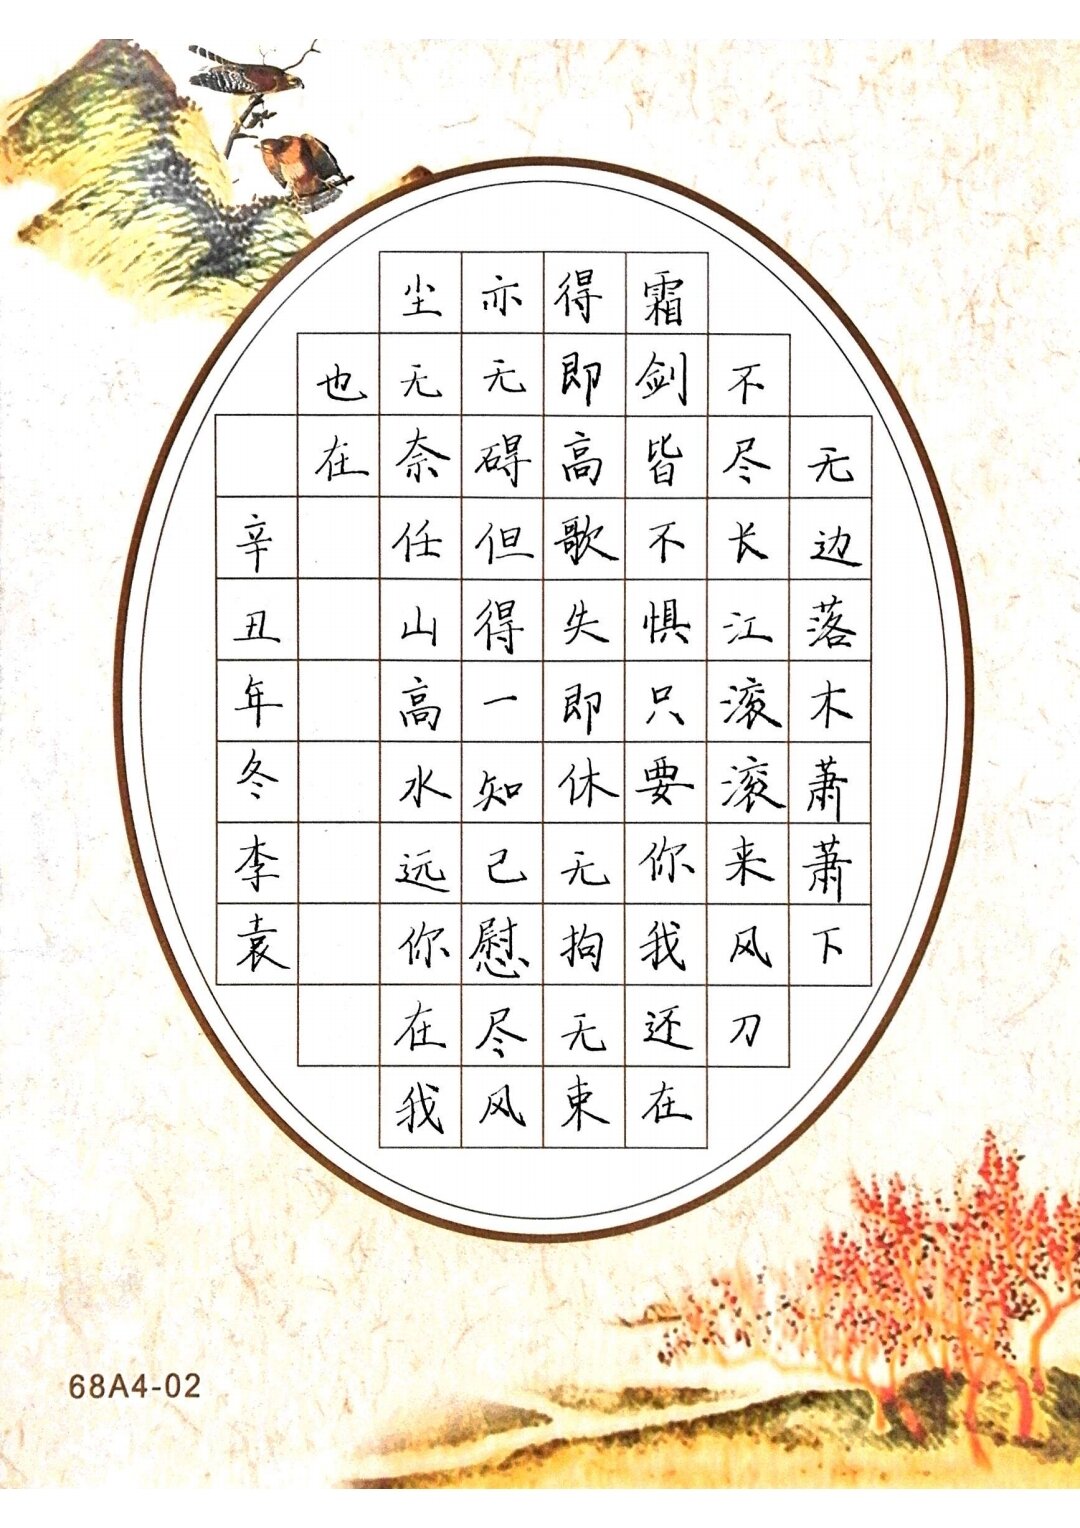 无边落木萧萧下
不尽长江滚滚来风刀
霜剑皆不惧只要你我还在
得即高歌失即休无拘无束
亦无碍但得一知己慰尽风
尘无奈任山高水远你在我
也在
辛丑年冬李袁
68A4-02